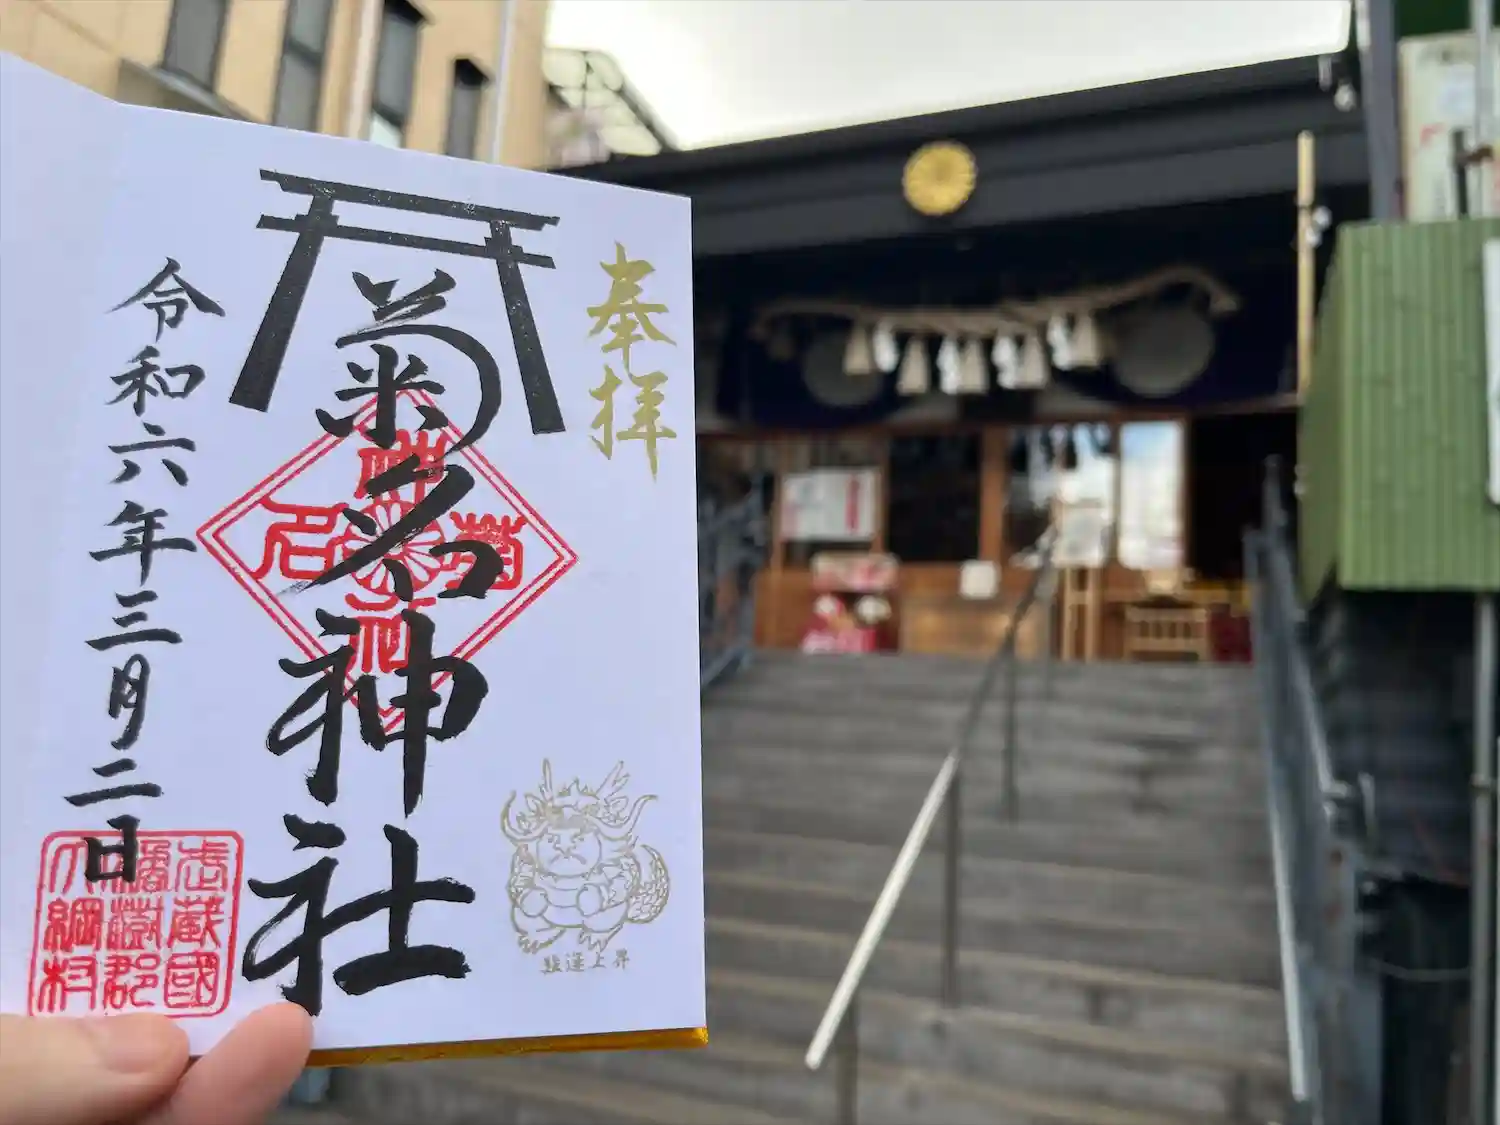 奉拝
菊名神社
神
菊
名
社
令和六年三月二日
武蔵國
橘樹郡
大綱村
龍運上昇